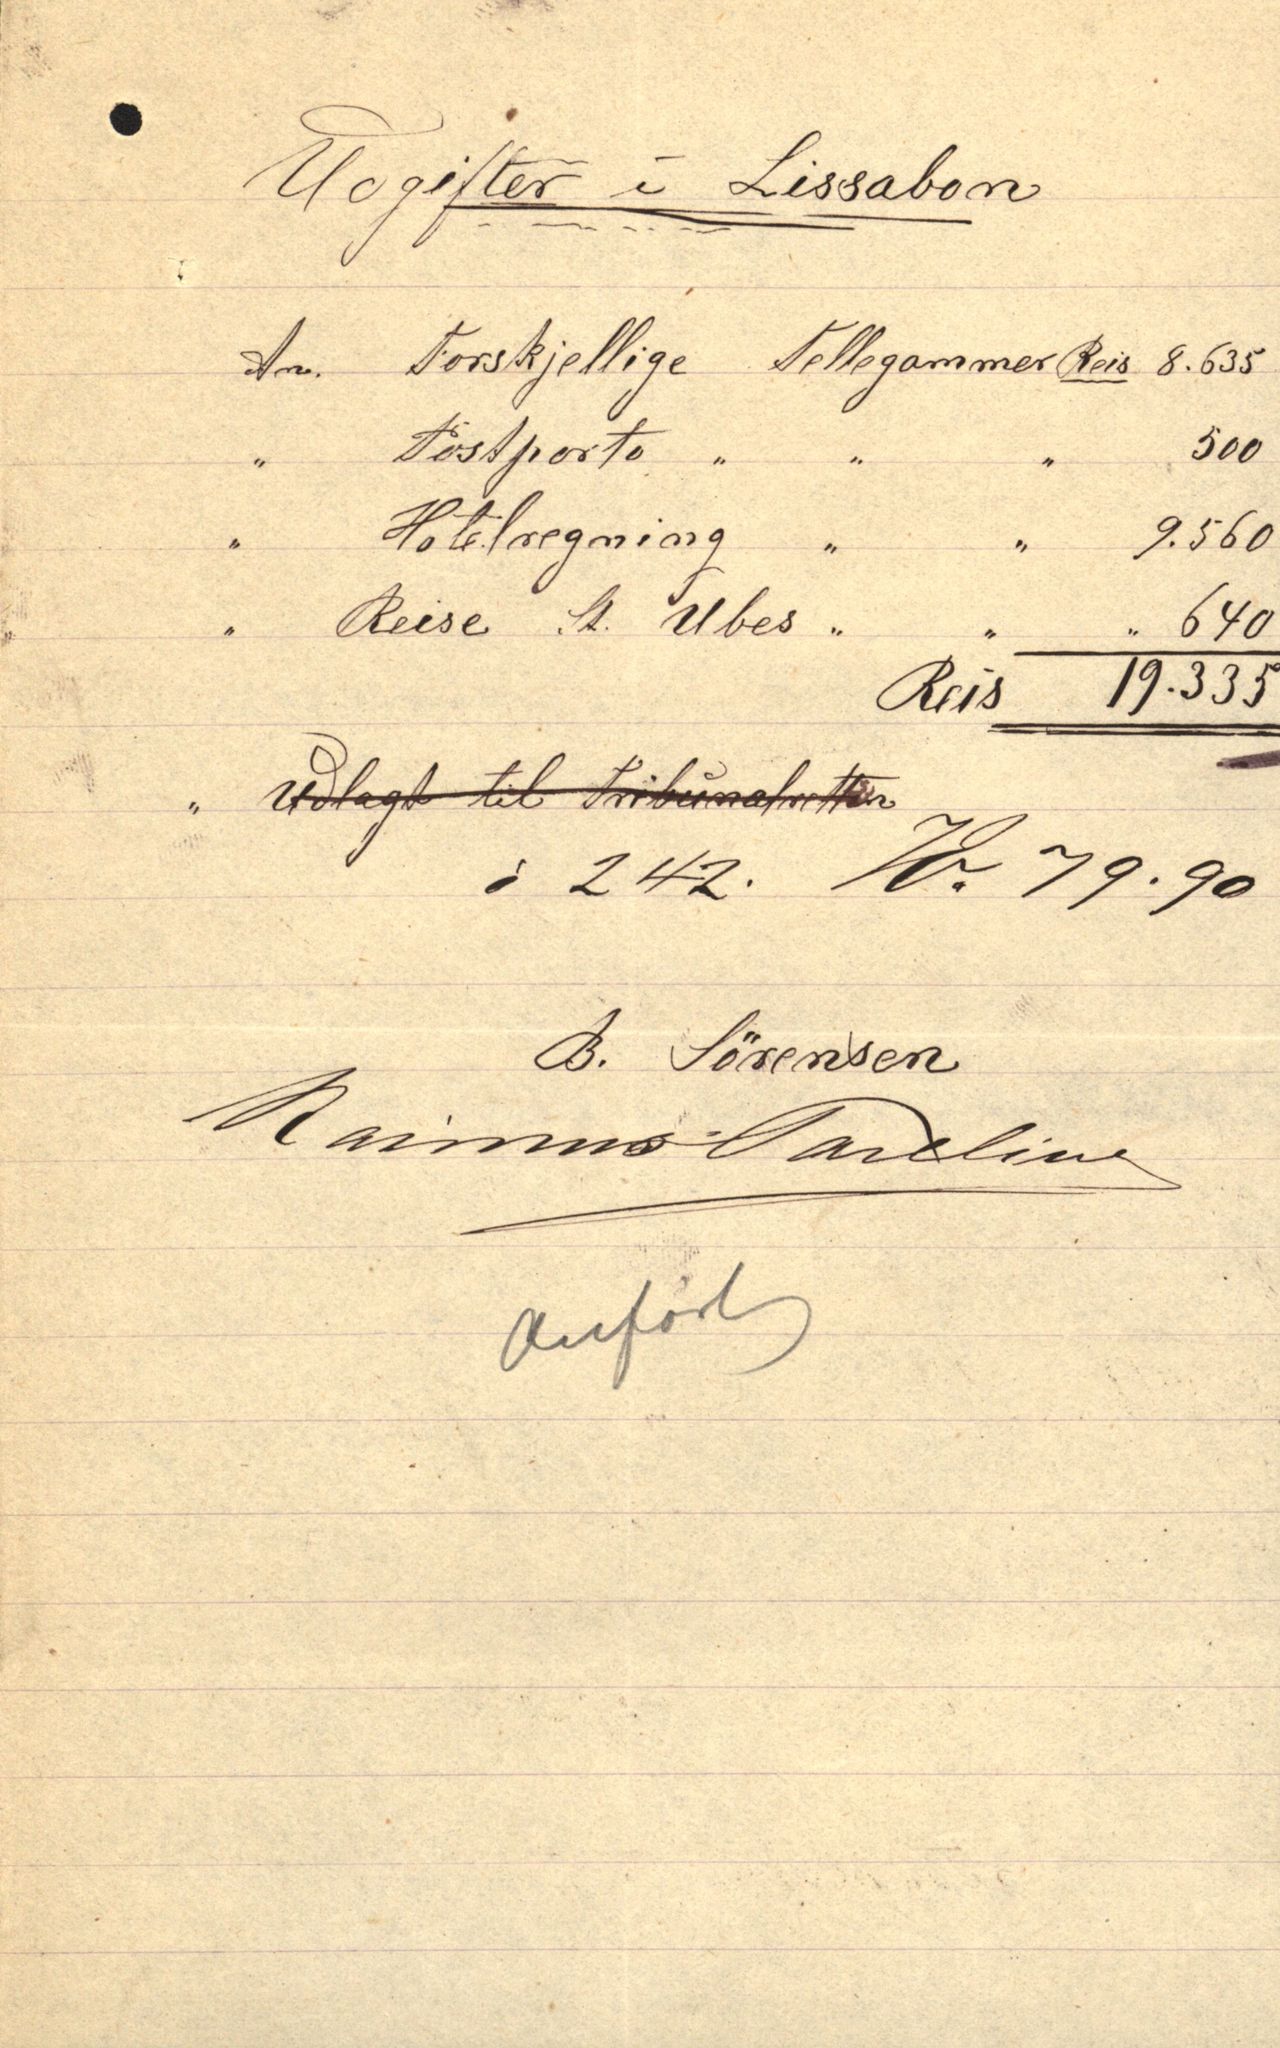 Udgifter i Lissabon
An. Forskjellige Tellegammer Reis 8.635
" Postporto " " " 500
" Hotelregning " " 9.560
" Reise St. Ubes " " " 640
Reis 19.335
" Udlagt til Tribunalretten
à 242. Kr. 79.90
B. Sörensen
Anført